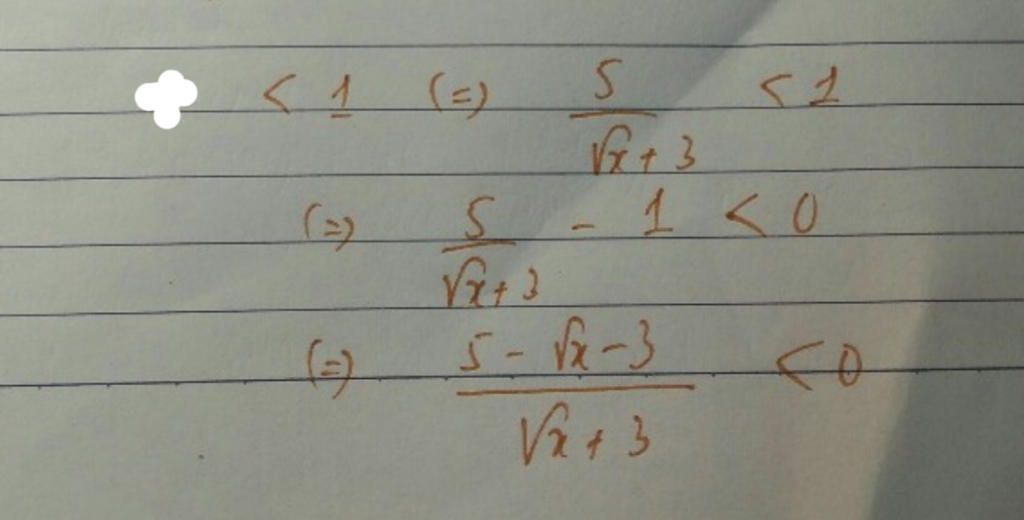 < 1 (=) 5/(√x + 3) < 1
(=) 5/(√x + 3) - 1 < 0
(=) (5 - √x - 3)/(√x + 3) < 0